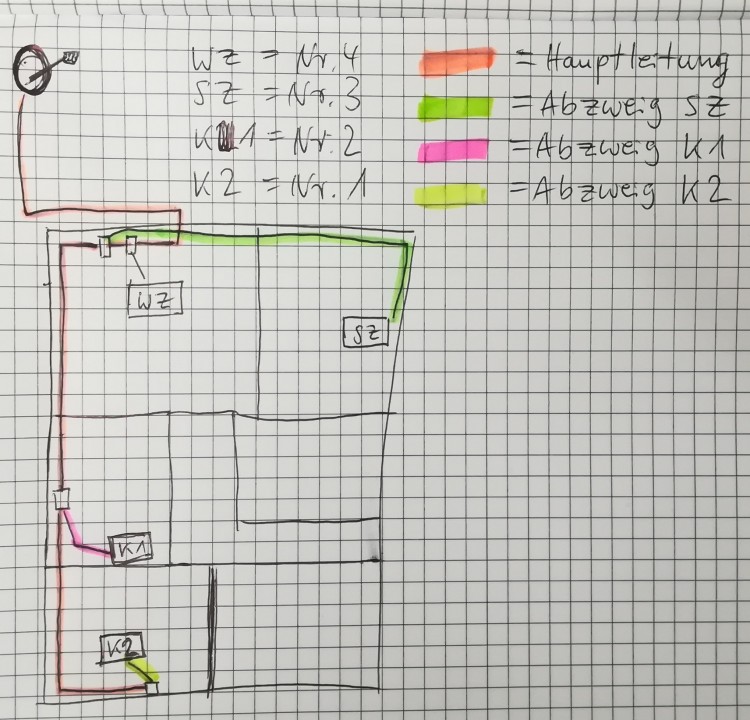 WZ = Nr. 4
SZ = Nr. 3
K 1 = Nr. 2
K2 = Nr. 1
= Hauptleitung
= Abzweig SZ
= Abzweig K1
= Abzweig K2
WZ
SZ
K1
K2